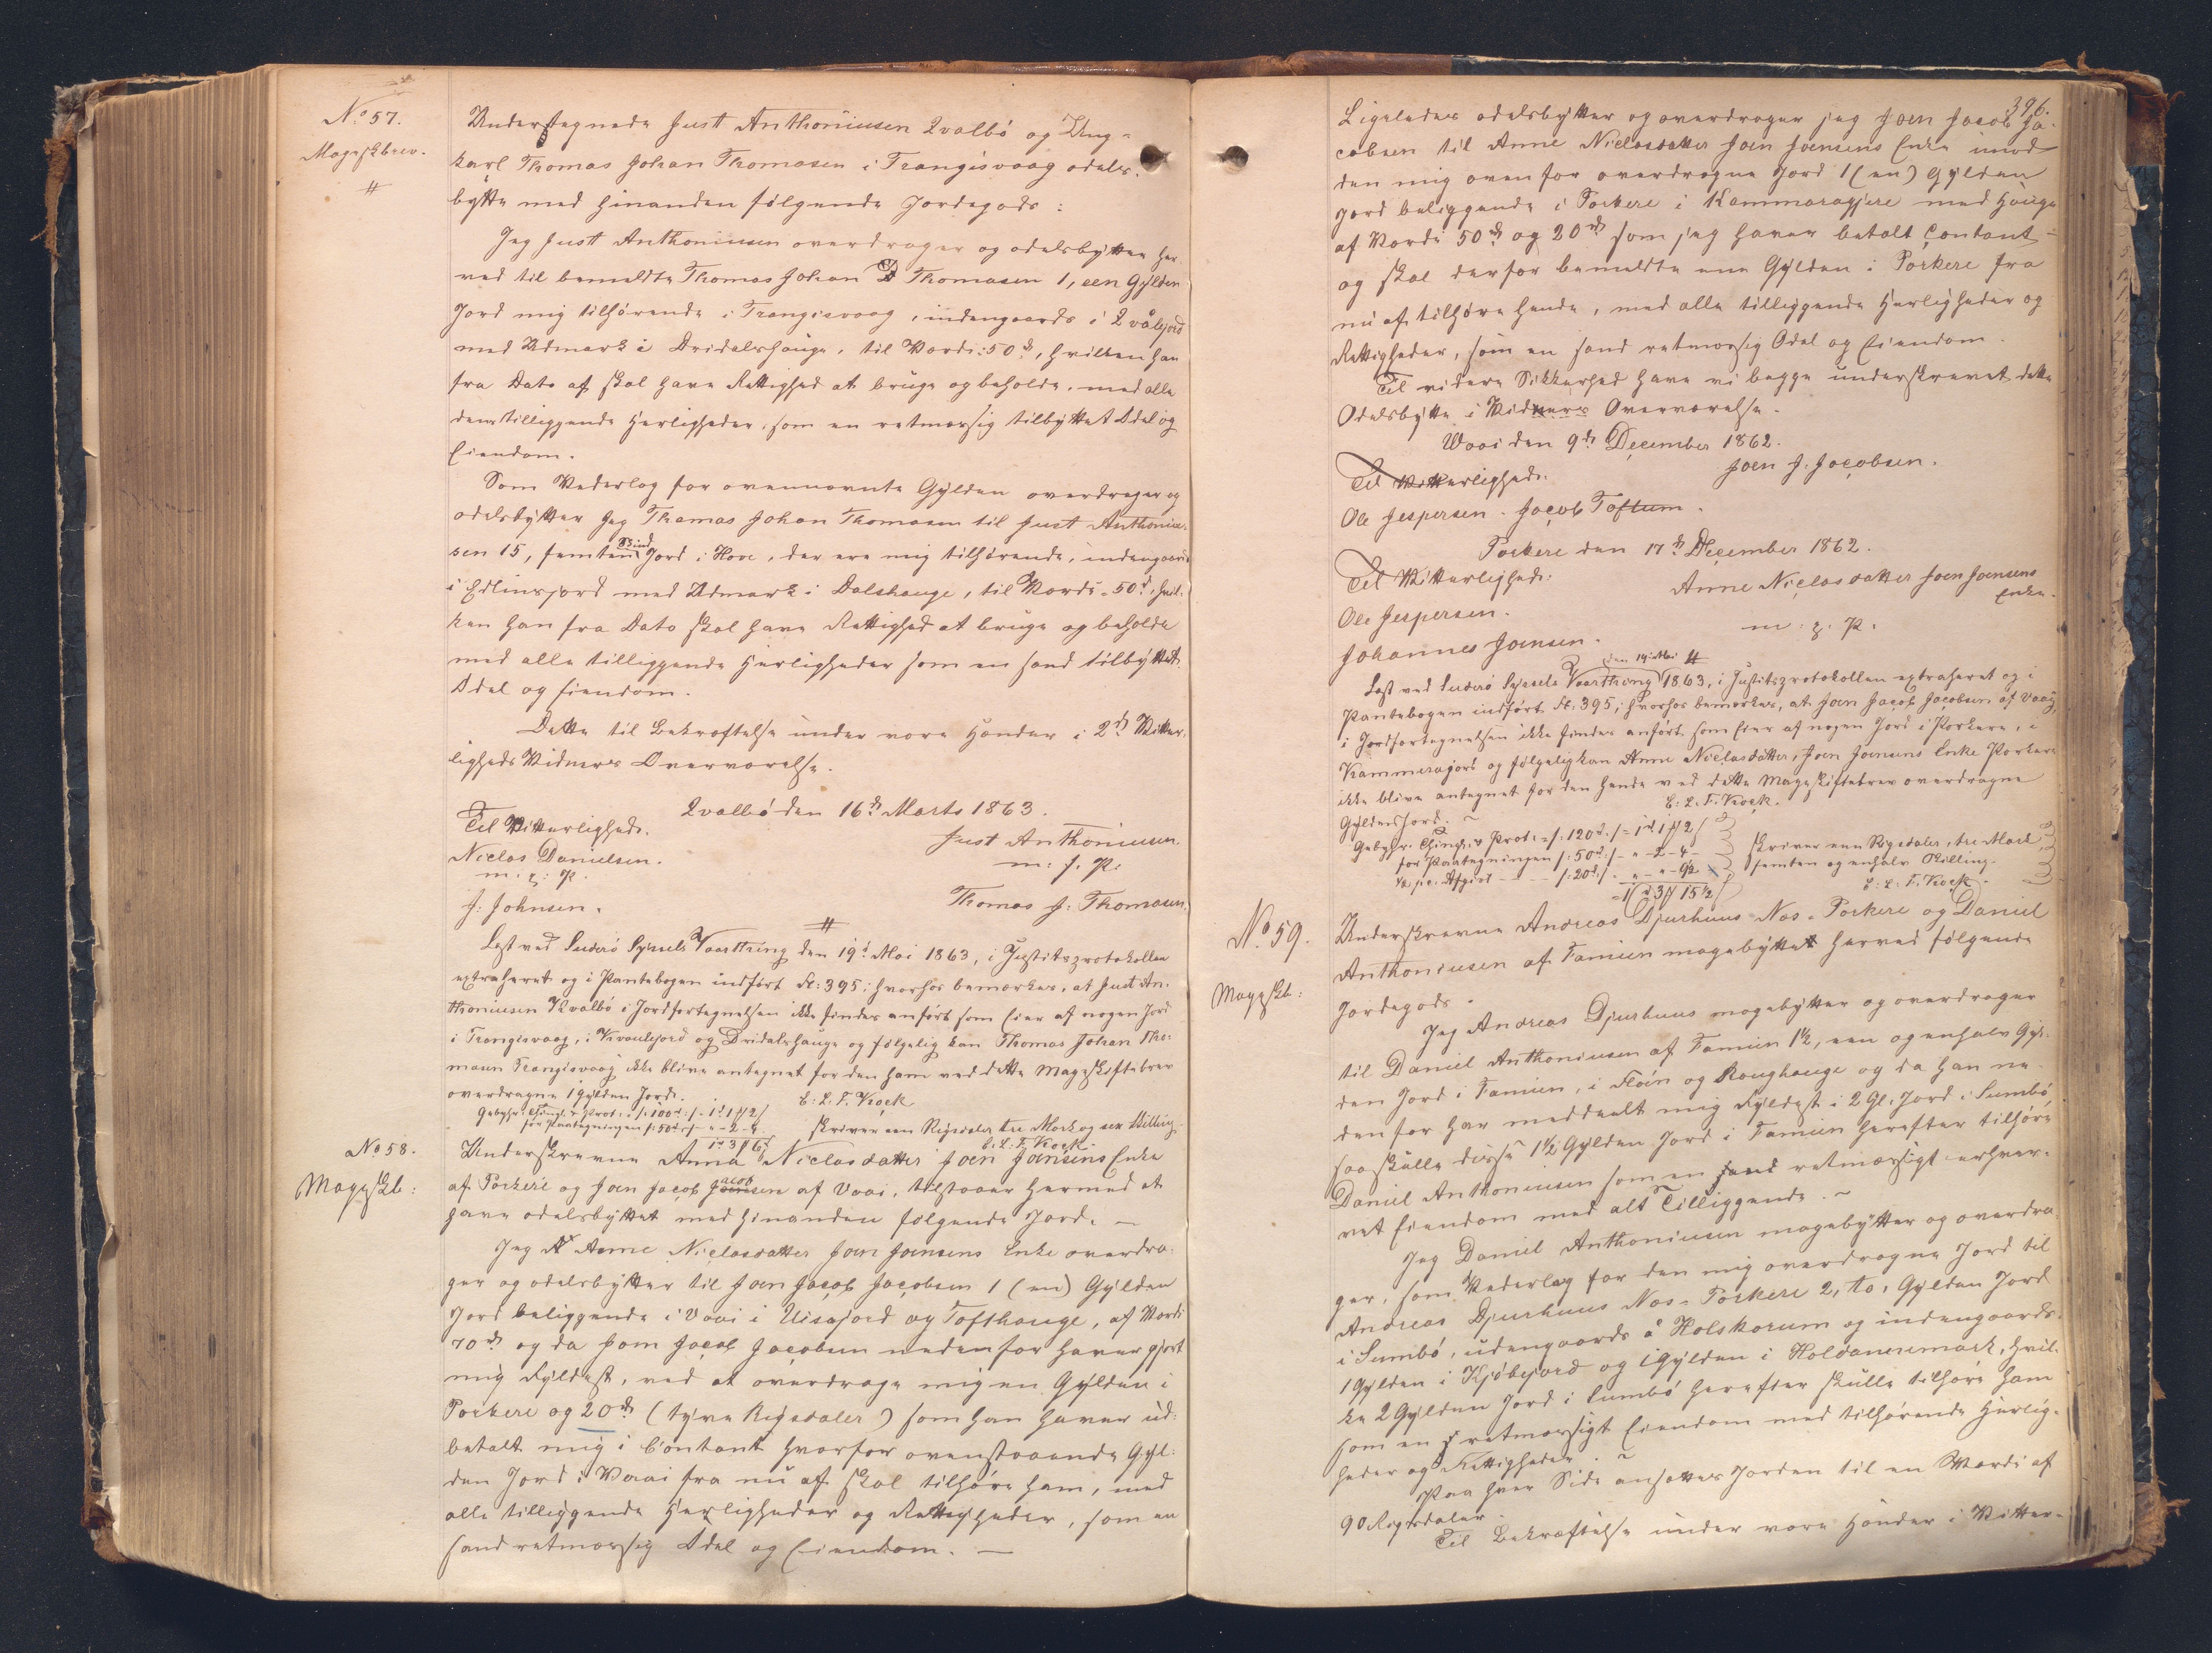 No 57.
Mageskbrev.
Undertegnede Just Anthoniusen Qvalbö og Ung-
karl Thomas Johan Thomasen i Trangisvaag odels-
bytte med hinanden følgende Jordegods:
Jeg Just Anthoniusen overdrager og odelsbytter her-
ved til bemeldte Thomas Johan D Thomasen 1, een Gylden
Jord mig tilhørende i Trangisvaag, indengaards i Qvålejord
med Udmark i Dridalshauge, til Værdi: 50 rd, hvilken han
fra Dato af skal have Rettighed at bruge og beholde, med alle
dens tilliggende Herligheder, som en retmæssig tilbyttet Odel og
Eiendom.
Som Vederlag for ovennævnte Gylden overdrager og
odelsbytter Jeg Thomas Johan Thomasen til Just Anthoniu-
sen 15, femten Skind Jord i Hove, der ere mig tilhørende, indengaards
i Edlinsjord med Udmark i Dalshauge, til Værdi - 50 rd, hvil-
ken han fra Dato skal have Rettighed at bruge og beholde
med alle tilliggende Herligheder som en sand tilbyttet
Odel og Eiendom.
Dette til Bekræftelse under vore Hænder i 2de Vitter-
ligheds Vidners Overværelse.
Qvalbö den 16de Marts 1863.
Til Vitterlighed.
Niclas Danielsen.
m. f. P.
J: Johnsen.
Just Anthoniusen.
m: f. P.
Thomas J: Thomasen.
Læst ved Suderö Syssels Vaarthing den 19d Mai 1863, i Justitsprotokollen
extraheret og i Pantebogen indført Fol: 395; hvorhos bemærkes, at Just An-
thoniusen Kvalbö i Jordfortegnelsen ikke findes anført som Eier af nogen Jord
i Trangisvaag, i Kvaalejord og Dridalshauge og følgelig kan Thomas Johan Tho-
masen Trangisvaag ikke blive antegnet for den ham ved dette Mageskiftebrev
overdragne 1 Gylden Jord.
E: L. T. Krogk
Gebyhr: Thingl. & Prot: /: 100rd :/ - 1rd 1 ß 2
for Paategningen /: 50rd :/ - " - 2 - 4
1rd 3 ß 6
skriver een Rigsdaler tre Mark og sex Skilling.
E: L: T. Krogk.
No 58.
Mageskb:
Underskrevne Anna Niclasdatter Joen Joensens Enke
af Porkere og Joen Jacob Jacobsen af Vaai, tilstaaer hermed at
have odelsbyttet med hinanden følgende Jord. —
Jeg A Anne Niclasdatter Joen Joensens Enke overdra-
ger og odelsbytter til Joen Jacob Jacobsen 1 (en) Gylden
Jord beliggende i Vaai i Uisajord og Tofthauge, af Værdi
70 rd og da Joen Jacob Jacobsen nedenfor haver gjort
mig Fyldest, ved at overdrage mig en Gylden i
Porkere og 20 rd (tyve Rigsdaler) som han haver ud-
betalt mig i Contant hvorfor ovenstaaende Gyl-
den Jord i Vaai fra nu af skal tilhøre ham, med
alle tilliggende Herligheder og Rettigheder, som en
sand retmæssig Odel og Eiendom. —
396.
Ligeledes odelsbytter og overdrager jeg Joen Jacob Ja-
cobsen til Anne Niclasdatter Joen Joensens Enke imod
den mig ovenfor overdragne Jord 1 (en) Gylden
Jord beliggende i Porkere i Kammaragjere med Hauge
af Værdi 50 rd og 20 rd som jeg haver betalt Contant
og skal derfor bemeldte ene Gylden i Porkere fra
nu af tilhøre hende, med alle tilliggende Herligheder og
Rettigheder, som en sand retmæssig Odel og Eiendom.
Til videre Sikkerhed have vi begge underskrevet dette
Odelsbytte i Vidners Overværelse.
Waai den 9de December 1862.
Til Vitterlighed:
Joen J. Jacobsen.
Ole Jespersen. Jacob Toftum.
Porkere den 17de December 1862.
Til Vitterlighed:
Anne Niclasdatter Joen Joensens
Enke.
Ole Jespersen.
m. f. P.
Johannes Joensen.
Læst ved Suderö Syssels Vaarthing den 19 Mai 1863, i Justitsprotokollen extraheret og i
Pantebogen indført Fol: 395; hvorhos bemærkes, at Joen Jacob Jacobsen af Vaag,
i Jordfortegnelsen ikke findes anført som Eier af nogen Jord i Porkere, i
Kammerajord og følgelig kan Anne Niclasdatter, Joen Joensens Enke Porkere
ikke blive antegnet for den hende ved dette Mageskiftebrev overdragne
Gylden Jord.
E: L. T. Krogk.
Gebyhr: Thingl. & Prot: /: 120rd :/ = 1rd 1 ß 2
for Paategningen /: 50rd :/ - " - 2 - 4
½ pc. Afgivt - - /: 20rd :/ - " - " - 9½
1rd 3 ß 15½
skriver een Rigsdaler, tre Mark
femten og enhalv Skilling.
E: L: T. Krogk.
No 59.
Mageskb:
Underskrevne Andreas Djurhuus Næs - Porkere og Daniel
Anthoniusen af Famien magebytter herved følgende
Jordegods.
Jeg Andreas Djurhuus magebytter og overdrager
til Daniel Anthoniusen af Famien 1½, een og enhalv Gyl-
den Jord i Famien, i Floin og Roughauge og da han ne-
denfor har meddeelt mig Fyldest i 2 Gl. Jord i Sumbö,
saa skulle disse 1½ Gylden Jord i Famien herefter tilhøre
Daniel Anthoniusen som en sand retmæssigt erhver-
vet Eiendom med alt Tilliggende. ~
Jeg Daniel Anthoniusen magebytter og overdra-
ger, som Vederlag for den mig overdragne Jord til
Andreas Djurhuus Næs - Porkere 2, to, Gylden Jord
i Sumbö, udengaards å Holskorum og indengaards
1 Gylden i Kjöbejord og 1 Gylden i Holdanesmark, hvil-
ke 2 Gylden Jord i Sumbö herefter skulle tilhøre ham
som en retmæssigt Eiendom med tilhørende Herlig-
heder og Rettigheder. ~
Paa hver Side ansættes Jorden til en Værdi af
90 Rigsdaler.
Til Bekræftelse under vore Hænder i Vitter-